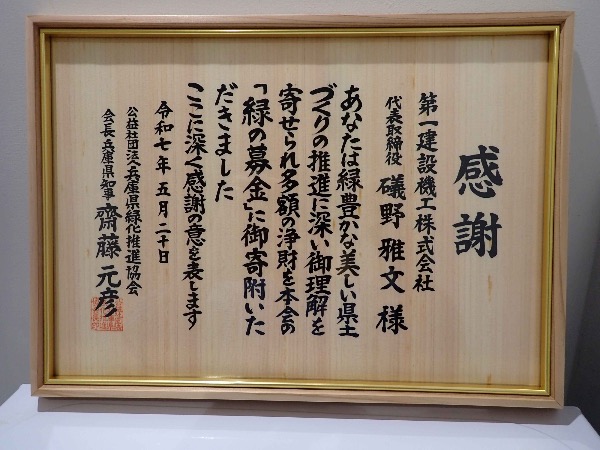 感謝
第一建設機工株式会社
代表取締役 礒野雅文様
あなたは緑豊かな美しい県土
づくりの推進に深い御理解を
寄せられ多額の浄財を本会の
「緑の募金」に御寄附いた
だきました
ここに深く感謝の意を表します
令和七年五月二十日
公益社団法人兵庫県緑化推進協会
会長兵庫県知事 齋藤元彦